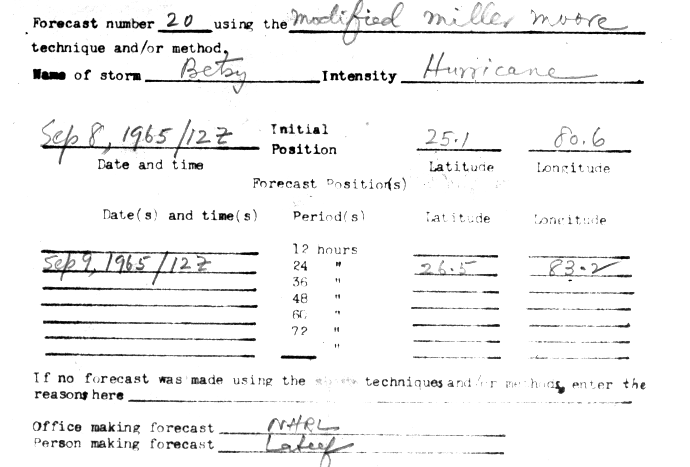 Forecast number 20 using the Modified Miller Moore
technique and/or method.
Name of storm Betsy Intensity Hurricane
Sep 8, 1965/12Z Initial Position 25.1 80.6
Date and time Latitude Longitude
Forecast Position(s)
Date(s) and time(s) Period(s) Latitude Longitude
12 hours
Sep 9, 1965/12Z 24 " 26.5 83.2
36 "
48 "
60 "
72 "
"
If no forecast was made using the above techniques and/or methods, enter the
reasons here
Office making forecast NHRL
Person making forecast Lateef